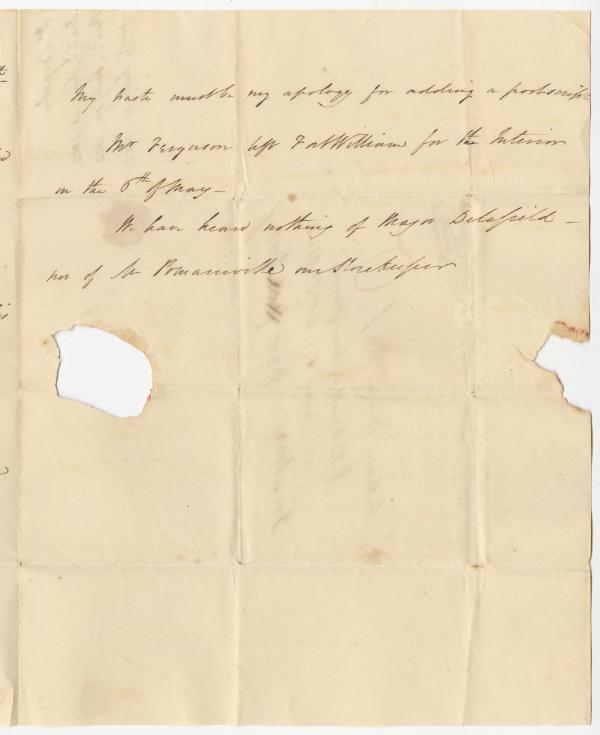 My haste must be my apology for adding a postscript
Mr Ferguson left Fort William for the Interior
on the 6th of May –
We have heard nothing of Major Delafield –
nor of Mr Pomainville our Storekeeper